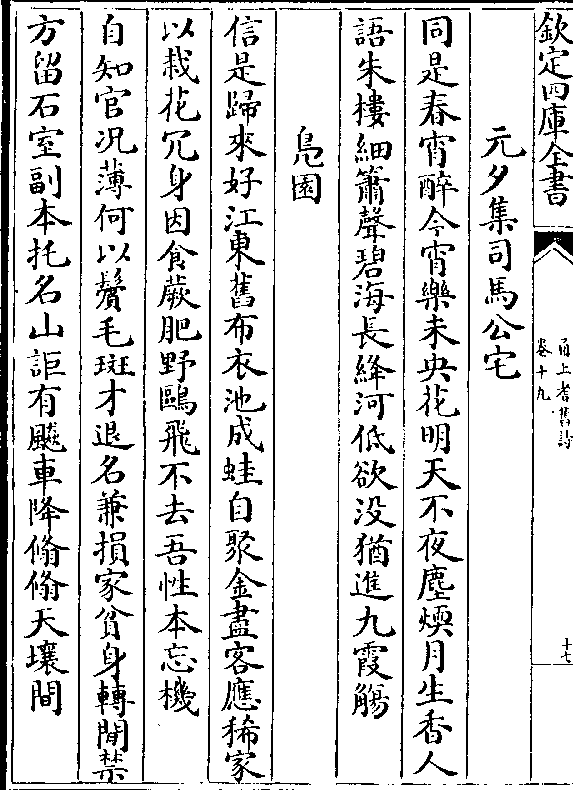 欽定四庫全書
甬上耆舊詩
卷十九
十七
元夕集司馬公宅
同是春宵醉今宵樂未央花明天不夜塵煗月生香人
語朱樓細簫聲碧海長絳河低欲没猶進九霞觴
鳬園
信是歸來好江東舊布衣池成蛙自聚金盡客應稀家
以栽花冗身因食蕨肥野鷗飛不去吾性本忘機
自知官况薄何以鬢毛斑才退名兼損家貧身轉閒禁
方留石室副本托名山詎有飈車降翛翛天壤間